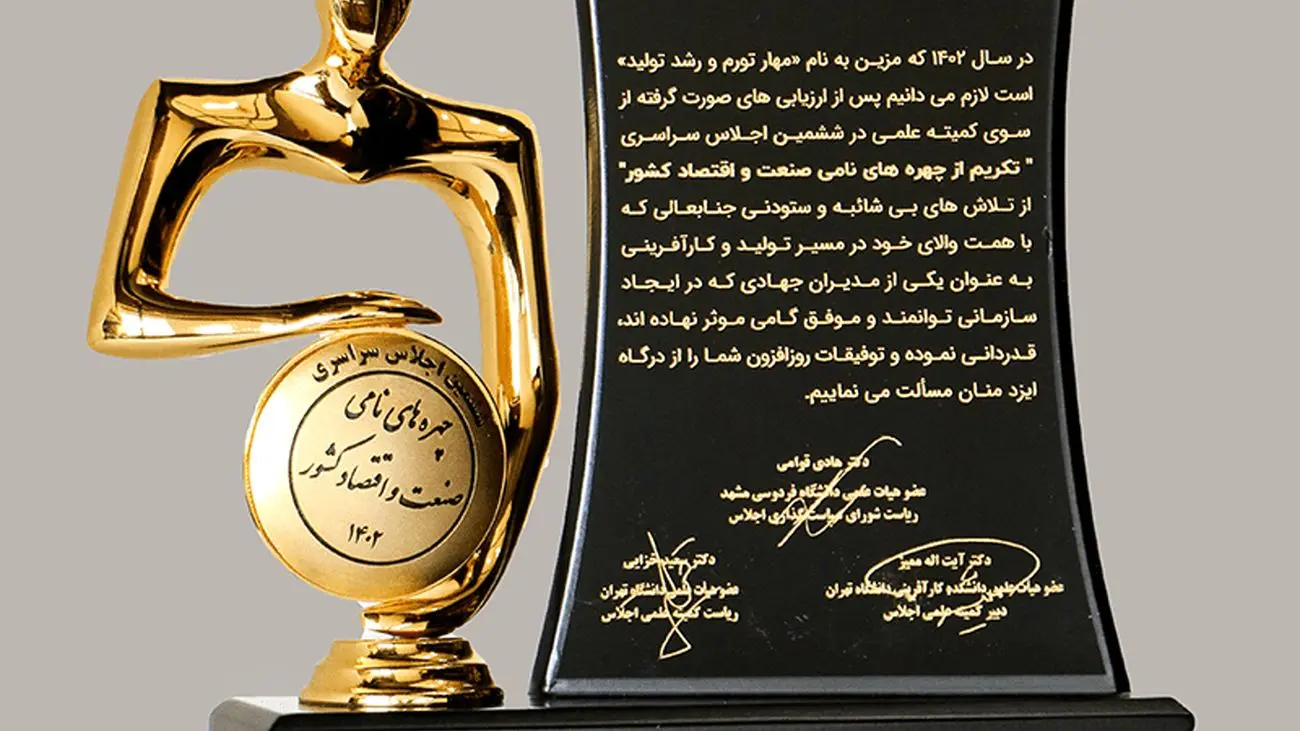 در سال ۱۴۰۲ که مزین به نام «مهار تورم و رشد تولید»
است لازم می دانیم پس از ارزیابی های صورت گرفته از
سوی کمیته علمی در ششمین اجلاس سراسری
" تکریم از چهره های نامی صنعت و اقتصاد کشور"
از تلاش های بی شائبه و ستودنی جنابعالی که
با همت والای خود در مسیر تولید و کارآفرینی
به عنوان یکی از مدیران جهادی که در ایجاد
سازمانی توانمند و موفق گامی موثر نهاده اند،
قدردانی نموده و توفیقات روزافزون شما را از درگاه
ایزد منان مسألت می نماییم.
دکتر هادی قوامی
عضو هیات علمی دانشگاه فردوسی مشهد
ریاست شورای سیاست گذاری اجلاس
دکتر آیت اله ممیز
عضو هیات علمی دانشکده کارآفرینی دانشگاه تهران
دبیر کمیته علمی اجلاس
دکتر سعید خزایی
عضو هیات علمی دانشگاه تهران
ریاست کمیته علمی اجلاس
ششمین اجلاس سراسری
چهره های نامی
صنعت و اقتصاد کشور
۱۴۰۲